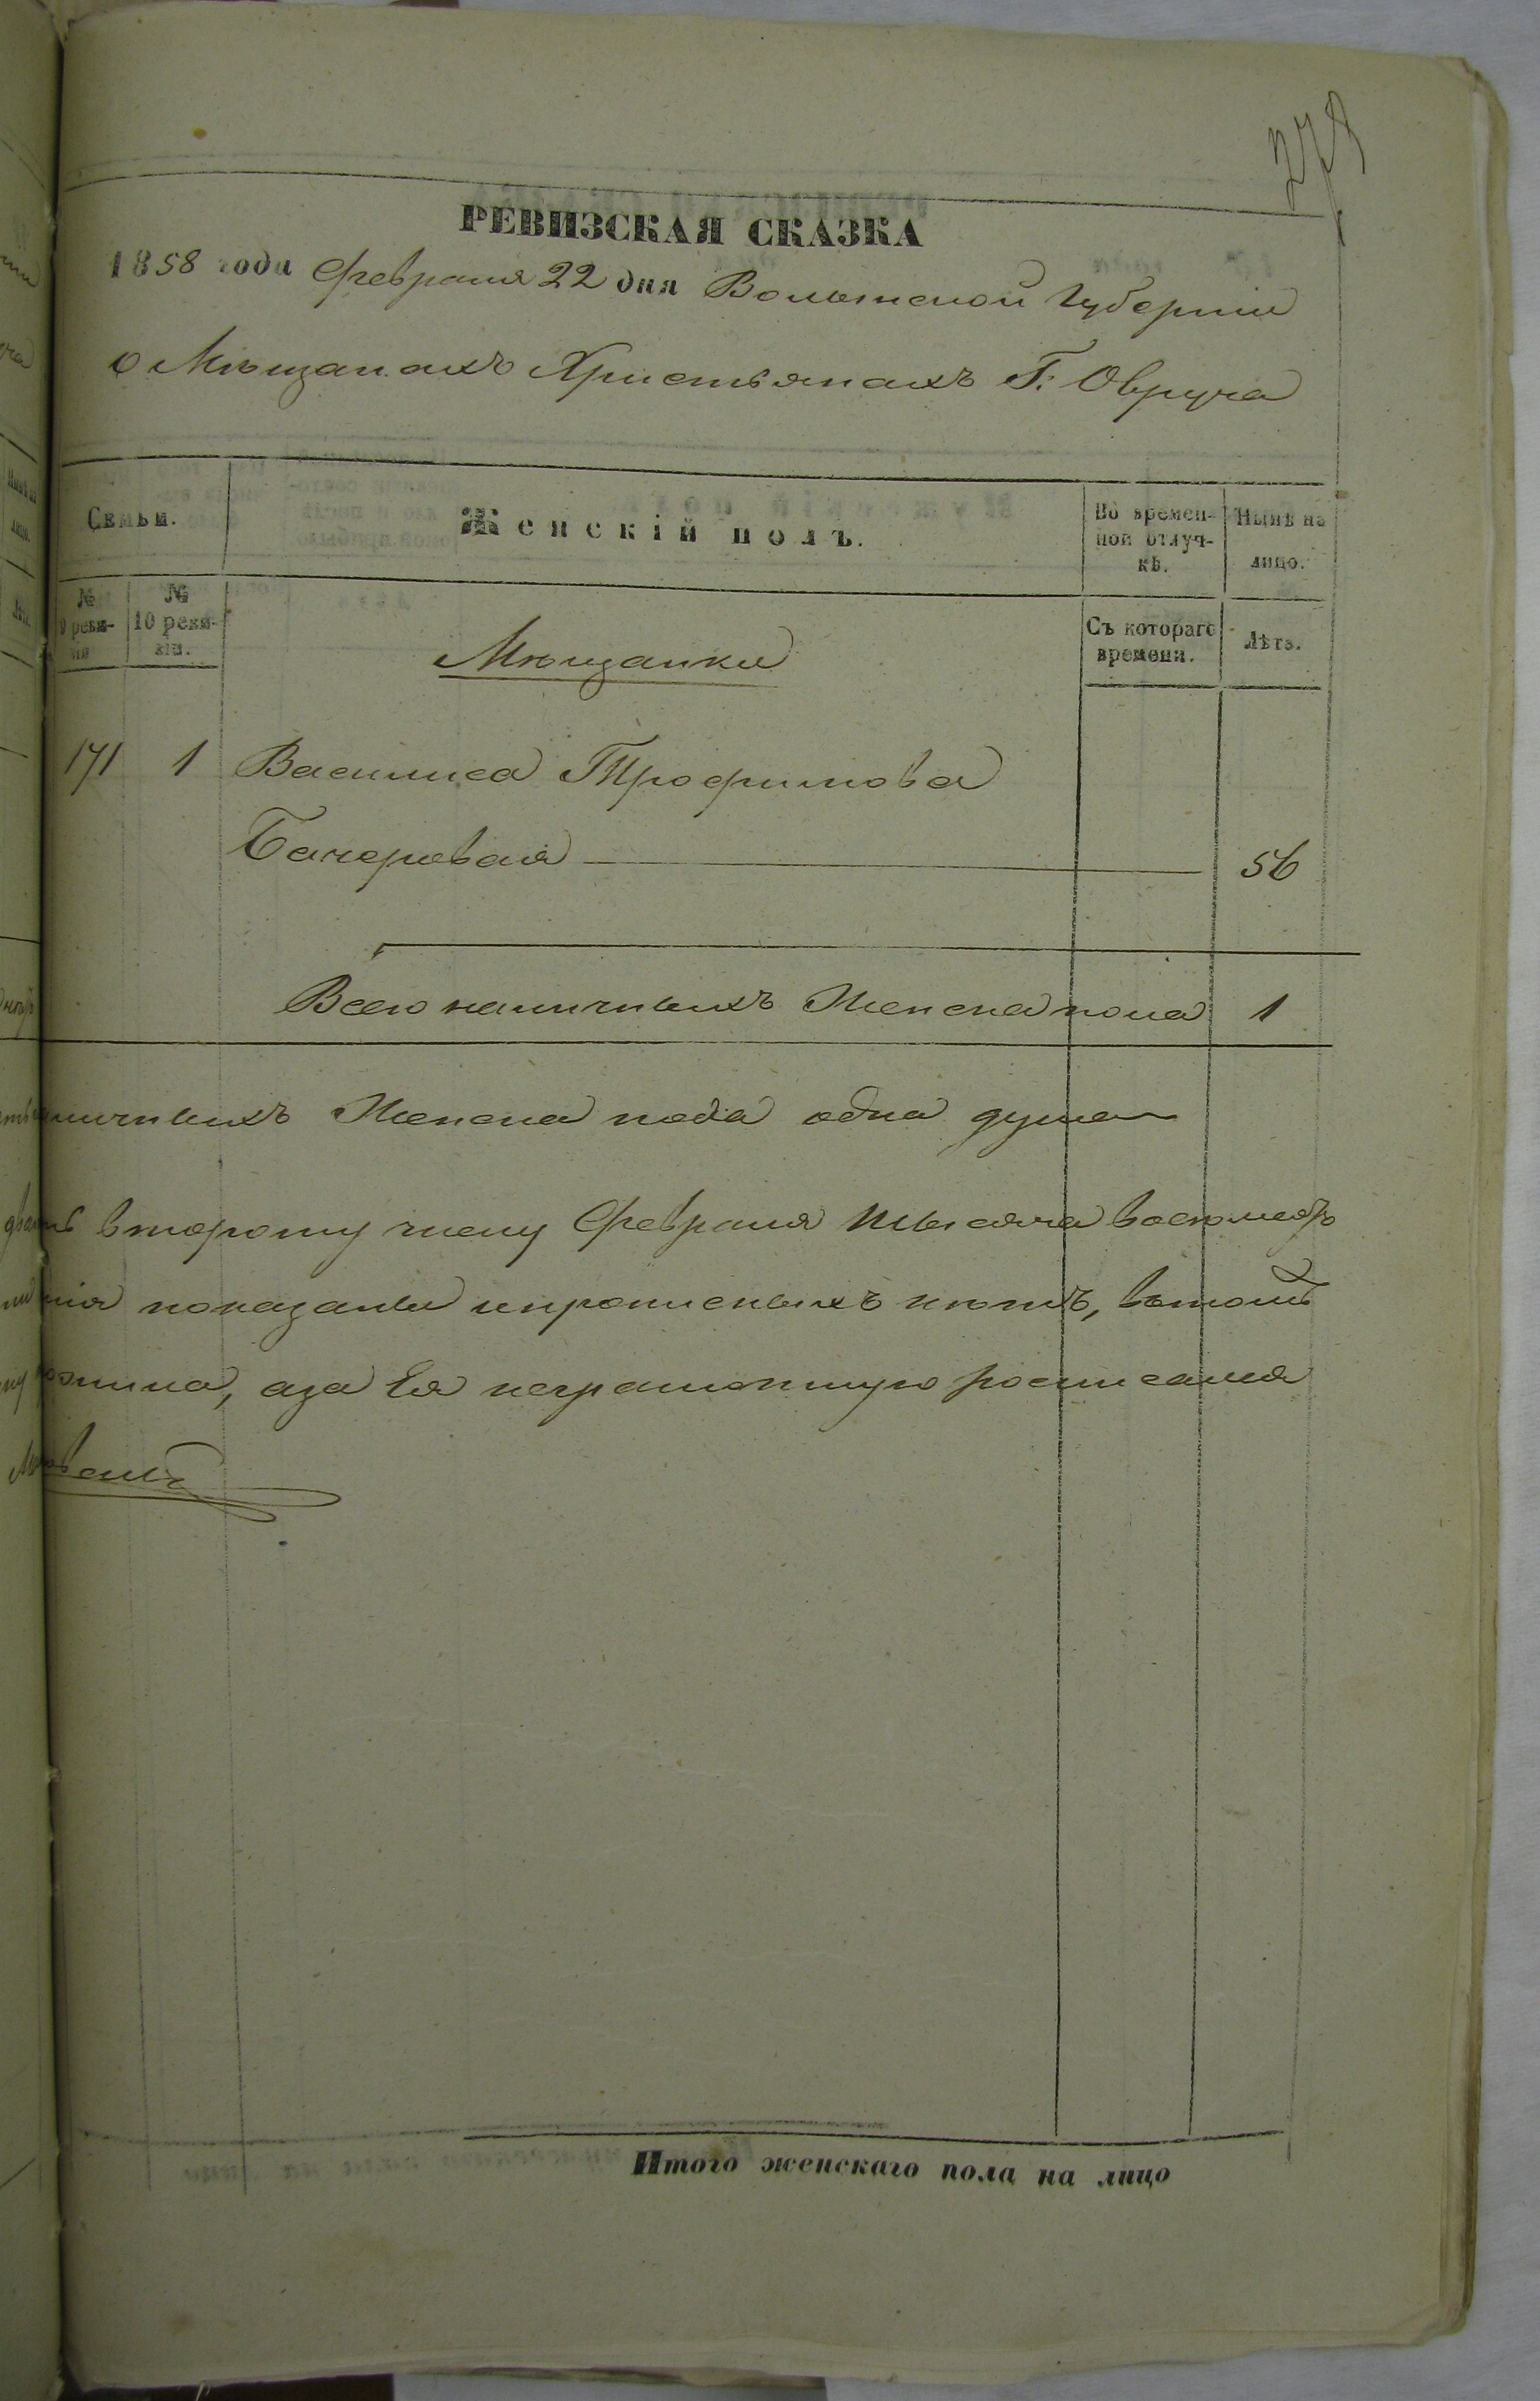 РЕВИЗСКАЯ СКАЗКА
1858 года Февраля 22 дня Волынской Губерніи
о Мѣщанахъ Христьянахъ Г. Овруча
Семьи.
Женскій полъ.
Во времен-
ной отлуч-
кѣ.
Нынѣ на
лицо.
№
9 реви-
зіи
№
10 реви-
зіи.
Съ котораго
времени.
Лѣта.
Мѣщанки
171 1 Василиса Трофимова
Бачеровая 56
Всего наличныхъ Женска пола 1
Женска пола одна душа
второму числу Февраля тысяча восемсотъ
показаны
нѣтъ,
аза Ея неграмотную росписался
Итого женскаго пола на лицо